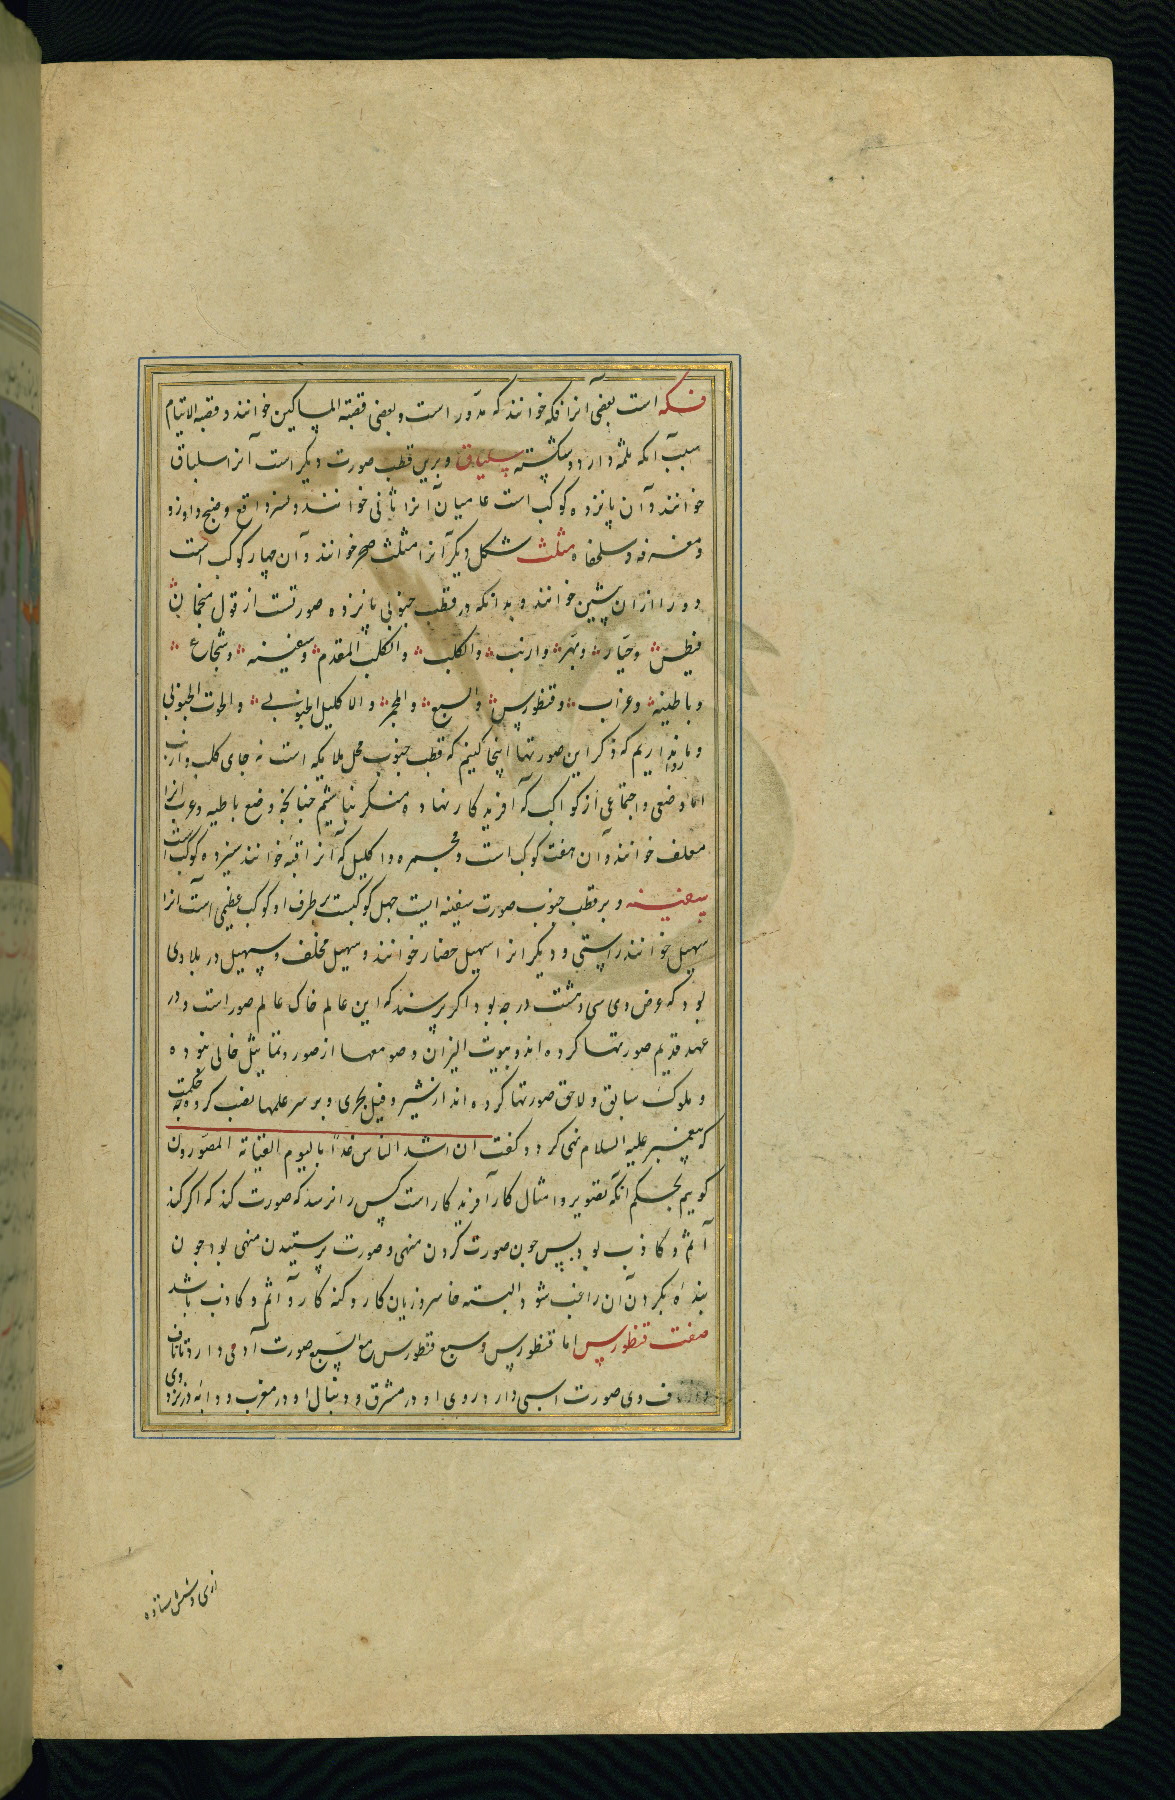 فکه است بعضی آنرا فکه خوانند که مدور است و بعضی قصبة المساکین خوانند و قصبه الایتام
سبب آنکه ثلمه دارد و شکسته سلیاق و برین قطب صورت دیکر است آنرا سلباق
خوانند و آن پانزده کوکب است عامیان آنرا خوانند و نسر واقع و صنج و اوز و
و معرفه و سلحفاه مثلث شکل دیکر آنرا مثلث خوانند و آن چهار کوکب است
و بدانکه در قطب جنوبی پانزده صورتست از قول منجمان
قیطس و جبار و نهر و ارنب و الکلب و الکلب المقدم و سفینه و شجاع
و باطیه و غراب و قنطورس و السبع و المجمر و الاکلیل الجنوبی و الحوت الجنوبی
و ما روا نداریم که ذکر این صورتها اینجا کنیم که قطب جنوب محل ملایکه است نه جای کلب و ارنب
اما وضعی و اجتماعی از کواکب که آفریدکار نهاده منکر نباشیم چنانچه وضع باطیه و عرب انرا
معلف خوانند و آن هفت کوکب است و مجمره و اکلیل که آنرا قبه خوانند سیزده کوکب است
سفینه و بر قطب جنوب صورت سفینه ایست چهل کوکبست بر طرف او کوکب عظیمی است آنرا
سهیل خوانند راستی و دیکر انرا سهیل حضار خوانند و سهیل مخلف و سهیل در بلادی
بود که عرض وی سی و هشت درجه بود اکر پرسند که این عالم خاک عالم صور است و در
عهد قدیم صورتها کرده اند و بیوت النیران و صومعها از صور و تماثیل خالی نبوده
و ملوک سابق و لاحق صورتها کرده اند از شیر و فیل بحری و بر سر علمها نصب کرده چه حکمت
که پیغمبر علیه السلام نهی کرد و کفت ان اشد الناس عذابا لیوم القیامة المصورون
کوییم بحکم آنکه تصویر و امثال کار آفریدکار است کس را نرسد که صورت کند که اکر کند
آثم و کاذب بود پس چون صورت کردن منهی و صورت پرستیدن منهی بود چون
بنده بکردن آن راغب شود البته خاسر و زیان کار و کنه کار و آثم و کاذب باشد
صفت قنطورس اما قنطورس و سبع قنطورس مع السبع صورت آدمی دارد تا ناف
وی صورت اسبی دارد روی او در مشرق و دنبال او در مغرب و دابه در نزد وی
ازی و شش ستاره